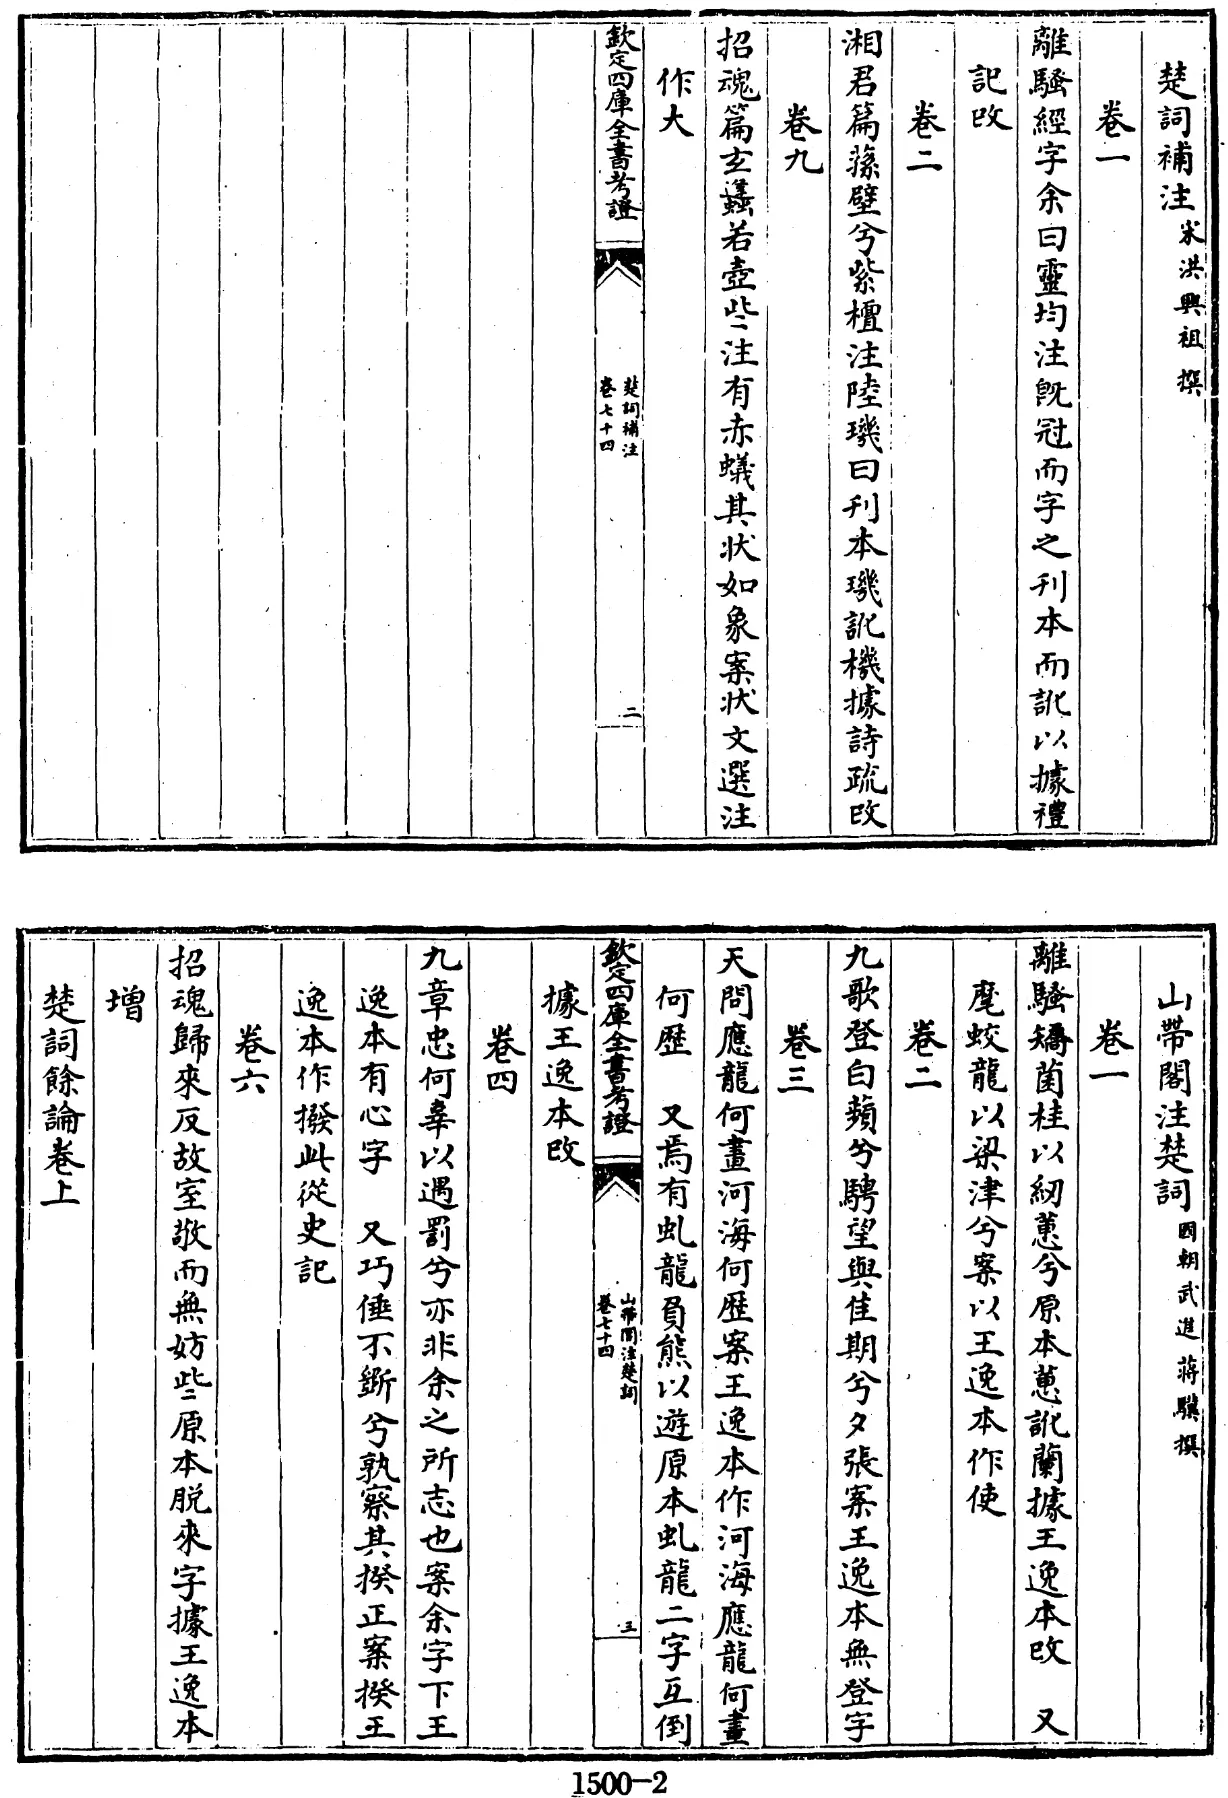 楚詞補注宋洪興祖撰
卷一
離騷經字余曰靈均注旣冠而字之刊本而訛以據禮
記改
卷二
湘君篇蓀壁兮紫檀注陸璣曰刊本璣訛機據詩疏改
卷九
招魂篇玄蠭若壺些注有赤蟻其狀如象案狀文選注
作大
欽定四庫全書考證
楚詞補注
卷七十四
二
山帶閣注楚詞國朝武進蔣驥撰
卷一
離騷矯菌桂以紉蕙兮原本蕙訛蘭據王逸本改　又
麾蛟龍以梁津兮案以王逸本作使
卷二
九歌登白蘋兮騁望與佳期兮夕張案王逸本無登字
卷三
天問應龍何畫河海何歷案王逸本作河海應龍何畫
何歷　又焉有虬龍負熊以遊原本虬龍二字互倒
欽定四庫全書考證
山帶閣注楚詞
卷七十四
三
據王逸本改
卷四
九章忠何辜以遇罰兮亦非余之所志也案余字下王
逸本有心字　又巧倕不斵兮孰察其揆正案揆王
逸本作撥此從史記
卷六
招魂歸來反故室敬而無妨些原本脫來字據王逸本
增
楚詞餘論卷上
1500-2